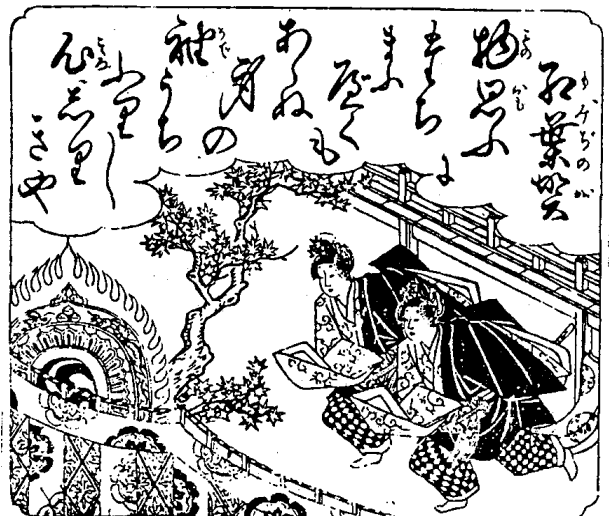 紅葉賀
もみぢのが
物思ふに
もの おも
立ち
まふ
べくも
あらぬ
身の
袖うち
そで
ふりし
心しり
きや